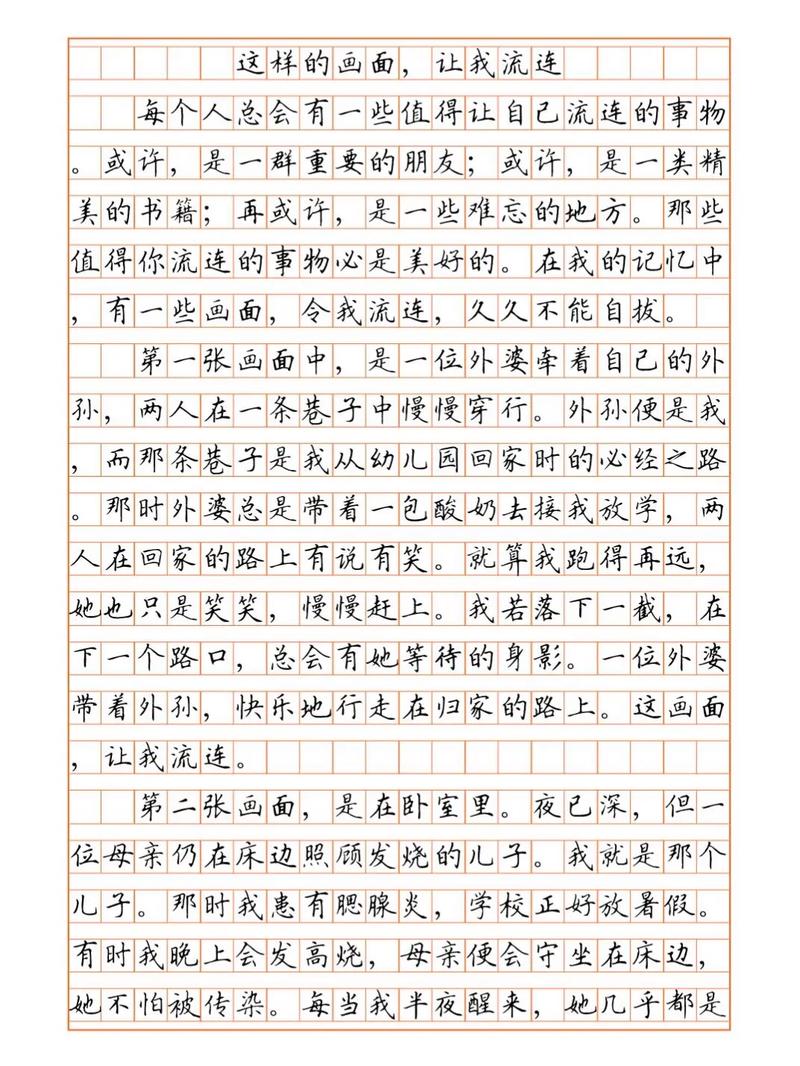 这样的画面，让我流连
每个人总会有一些值得让自己流连的事物
。或许，是一群重要的朋友；或许，是一类精
美的书籍；再或许，是一些难忘的地方。那些
值得你流连的事物必是美好的。在我的记忆中
，有一些画面，令我流连，久久不能自拔。
第一张画面中，是一位外婆牵着自己的外
孙，两人在一条巷子中慢慢穿行。外孙便是我
，而那条巷子是我从幼儿园回家时的必经之路
。那时外婆总是带着一包酸奶去接我放学，两
人在回家的路上有说有笑。就算我跑得再远，
她也只是笑笑，慢慢赶上。我若落下一截，在
下一个路口，总会有她等待的身影。一位外婆
带着外孙，快乐地行走在归家的路上。这画面
，让我流连。
第二张画面，是在卧室里。夜已深，但一
位母亲仍在床边照顾发烧的儿子。我就是那个
儿子。那时我患有腮腺炎，学校正好放暑假。
有时我晚上会发高烧，母亲便会守坐在床边，
她不怕被传染。每当我半夜醒来，她几乎都是